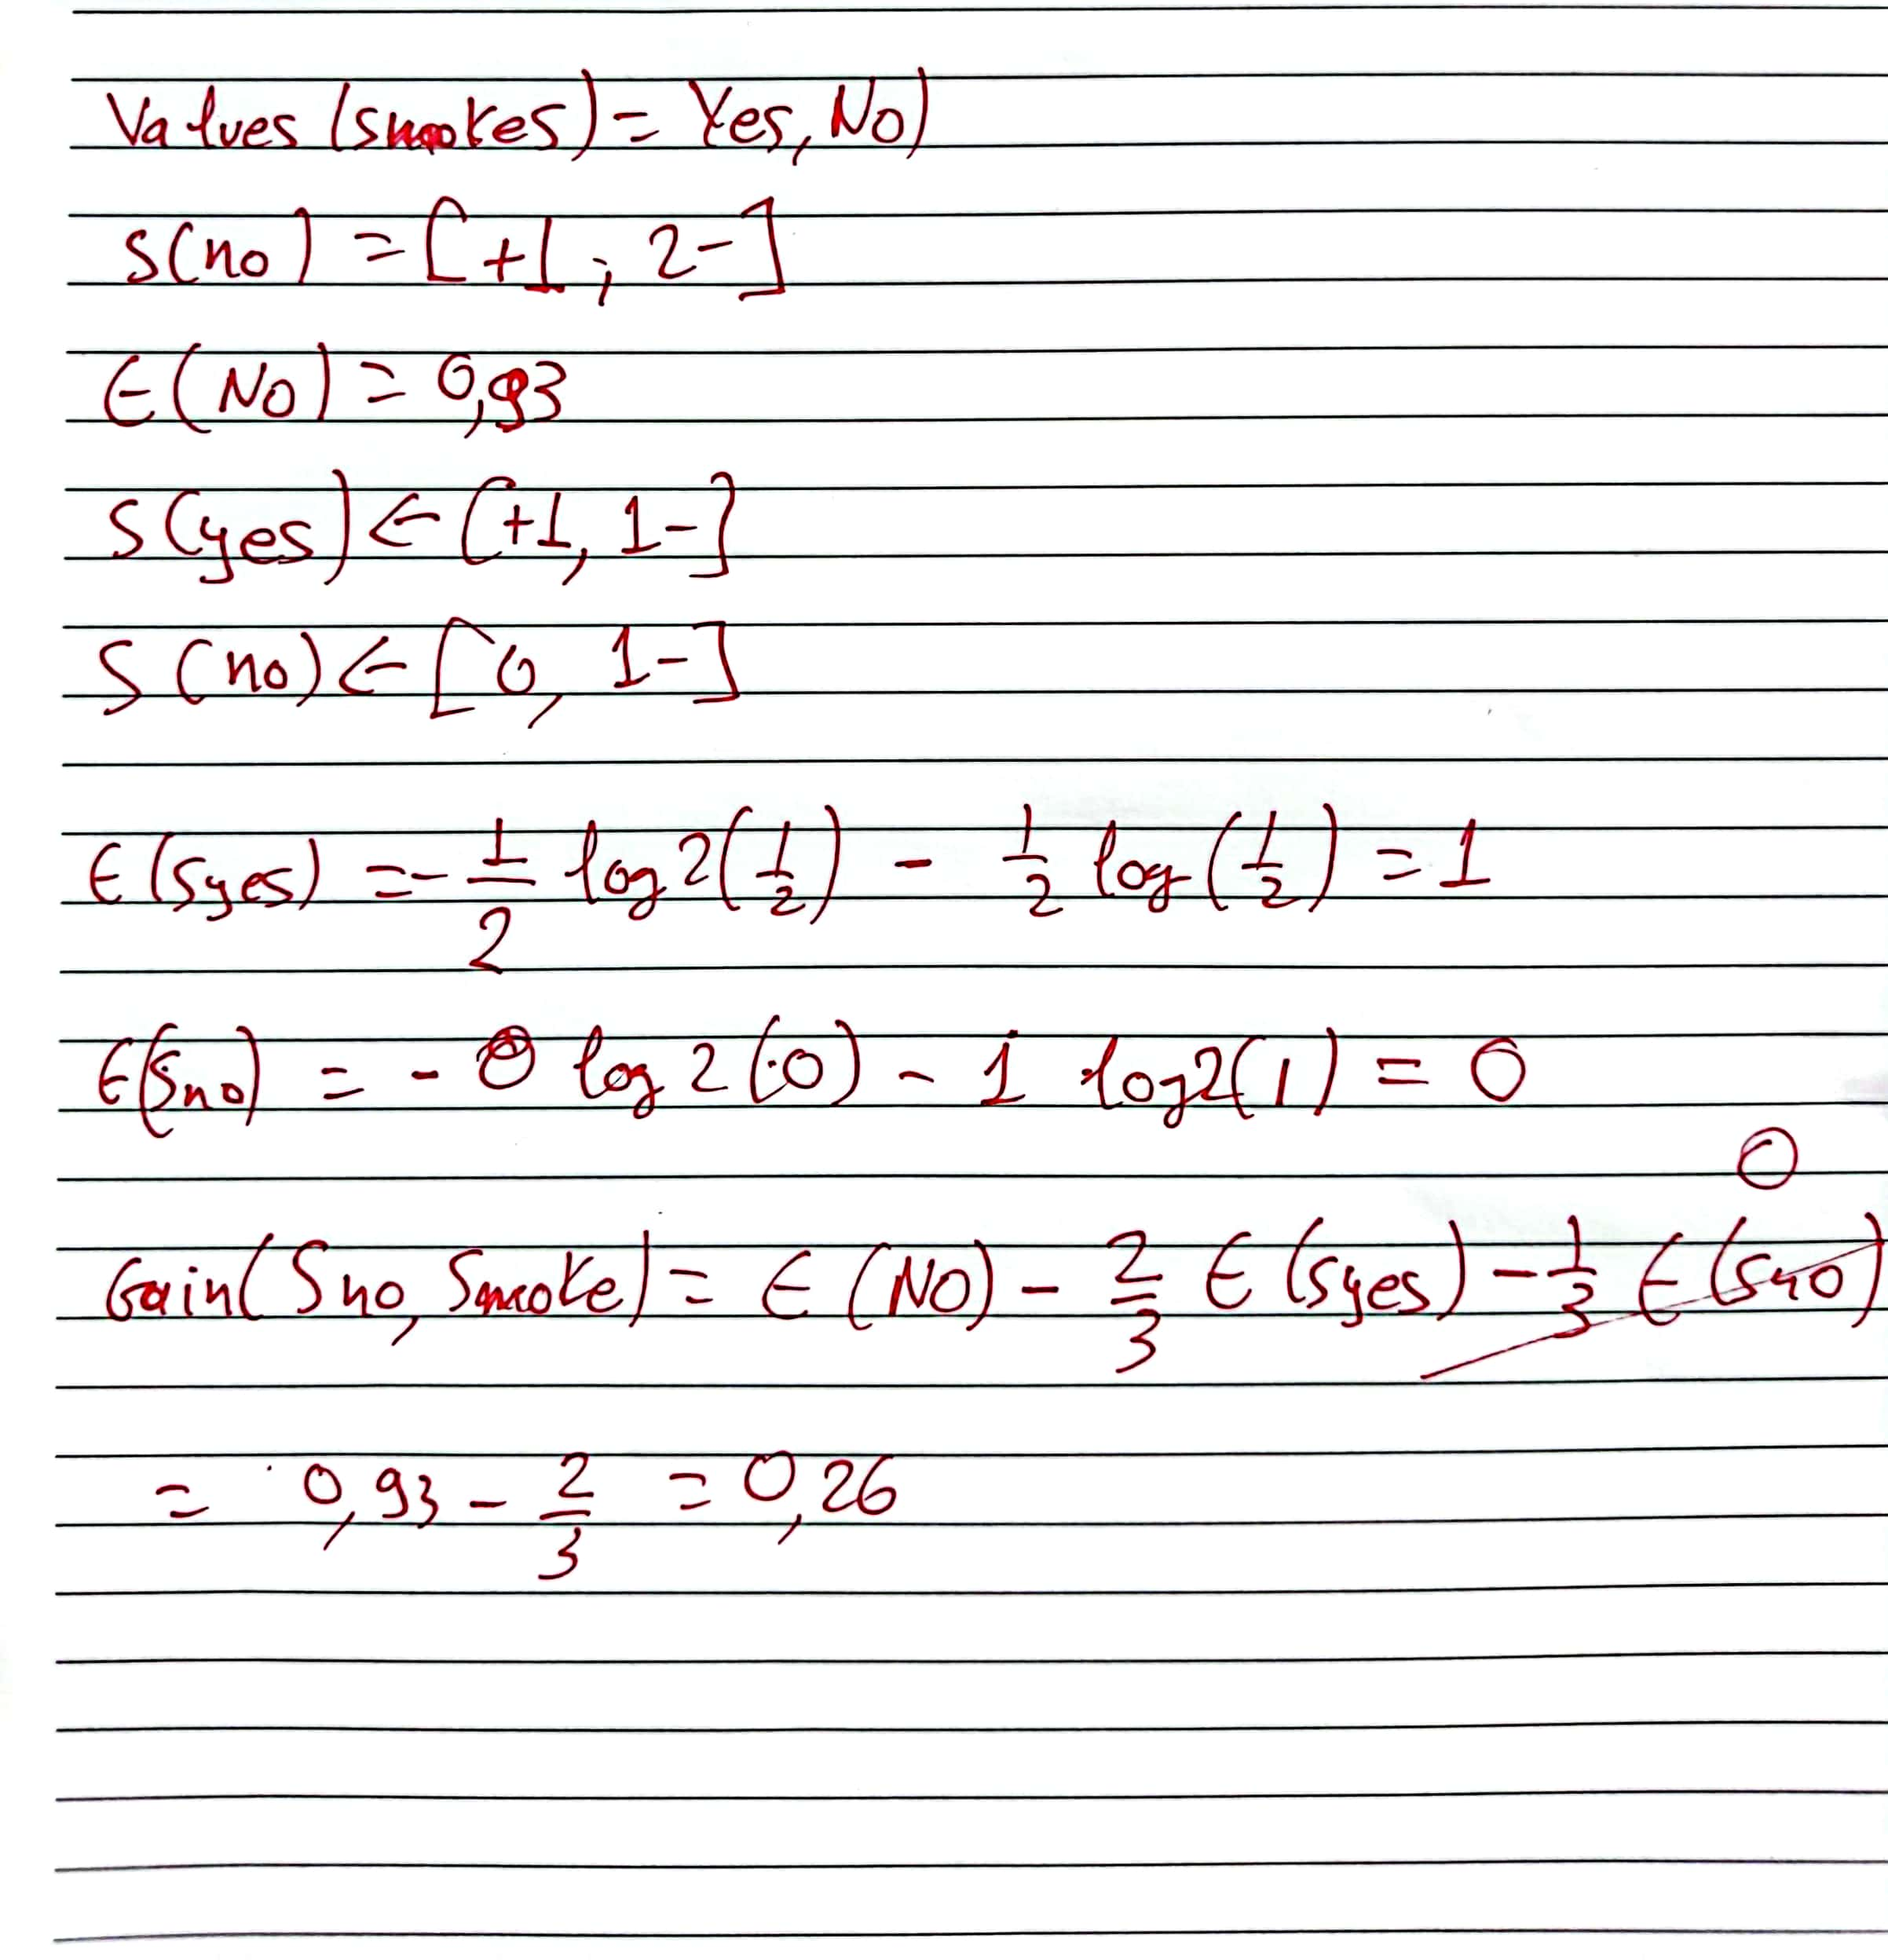 Values (smokes) = Yes, No)
S(no) = [+1, 2-]
E(No) = 0,93
S(yes) ← [+1, 1-]
S(no) ← [0, 1-]
E(Syes) = - 1/2 log2(1/2) - 1/2 log(1/2) = 1
E(Sno) = - 0 log2(0) - 1 log2(1) = 0
0
Gain(Sno, Smoke) = E(No) - 2/3 E(Syes) - 1/3 E(Sno)
= 0,93 - 2/3 = 0,26